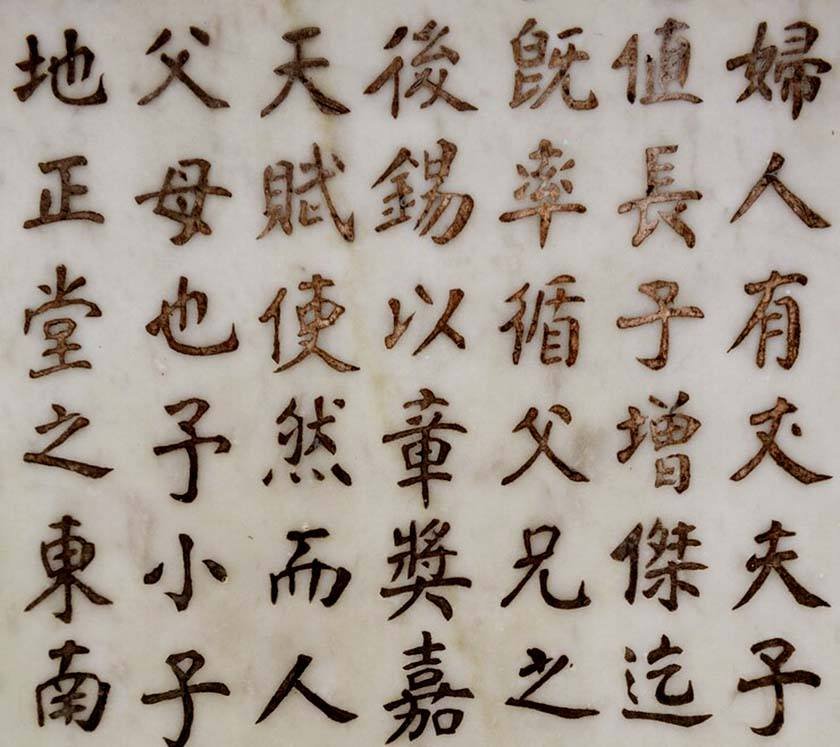 婦人有丈夫子
值長子增傑迄
既率循父兄之
後錫以章獎嘉
天賦使然而人
父母也予小子
地正堂之東南